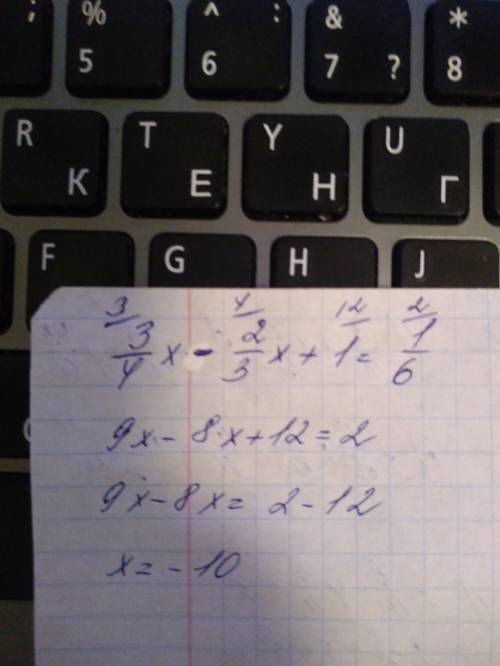 ; % 5 ^ : 6 & 7 ? * 8
R К T Е Y Н U Г
F G H J
3 4 12 2
3/4 x - 2/3 x + 1 = 1/6
9x - 8x + 12 = 2
9x - 8x = 2 - 12
x = - 10